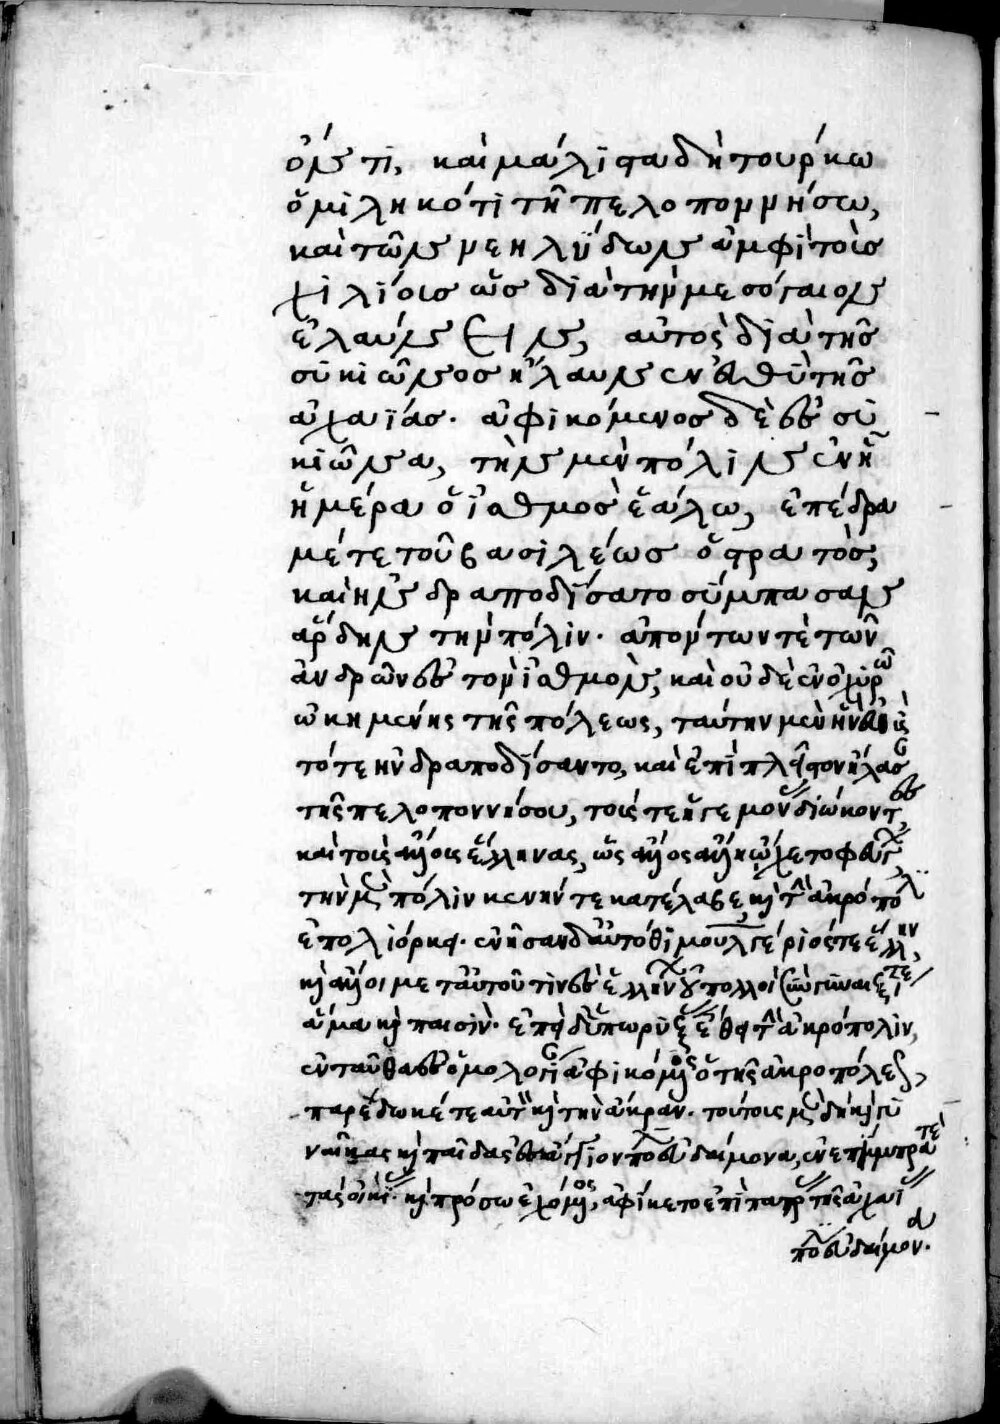 όντι, καὶ μάλιστα δὴ τουρίκω
ὁμιληκότι τῇ πελοποννήσω,
καὶ τῶν νεηλύδων ἀμφὶ τοὺς
χιλίους ὡς διὰ τὴν μεσόγαιον
ἐλαύνειν, αὐτὸς διὰ τῆς
σικιῶνος ἤλαυνεν εὐθὺ τῆς
ἀχαΐας. ἀφικόμενος δὲ ἐς σι
κιῶνα, τὴν μὲν πόλιν ἐν ᾗ
ἡμέρα ὁ ἰσθμὸς ἑάλω, ἐπέδρα
μέ τε τοῦ βασιλέως ὁ στρατὸς,
καὶ ἠνδραποδίσατο σύμπασαν
ἄρδην τὴν πόλιν. ἀπόντων τὲ τῶν
ἀνδρῶν ἐς τὸν ἰσθμὸν, καὶ οὐδὲ ἐν ὀχυρῶ
ὠκημένης τῆς πόλεως, ταύτην μὲν
τότε ἠνδραποδίσαντο, καὶ ἐπὶ πλεῖστον ἤλασ
τῆς πελοποννήσου, τούς τε ἡγεμον διώκοντες
καὶ τοὺς ἄλλους ἕλληνας, ὡς ἄλλος ἄλλη ὤχετο φεύγ
τὴν μὲν πόλιν κενήν τε κατέλαβε καὶ τὴν ἀκρόπολ
ἐπολιόρκει. ἐνῆσαν δ αὐτόθι μουλγέριός τε ἕλλην,
καὶ ἄλλοι μετ αὐτοῦ τινὲς ἑλλήν πολλοὶ σὺν γυναιξί τε
ἅμα καὶ παισὶν. ἐπεὶ δὲ ὑπωρύξ τὴν ἀκρόπολιν,
ἐνταῦθα ἐς ὁμολογί ἀφικόμενος ὁ τῆς ἀκροπόλεως,
παρέδωκέ τε αὑτὸν καὶ τὴν ἄκραν. τούτοις μὲν δὴ καὶ γυ
ναῖκας καὶ παῖδας ἐς αἴγιον πόλιν εὐδαίμονα, ἐνεπίμπρα τὲ
τὰς οἰκί. καὶ πρόσω ἐχόμενος, ἀφίκετο ἐπὶ πατρ τῆς ἀχαΐ
πόλιν εὐδαίμον.